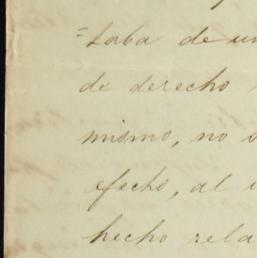 =taba de un
de derecho
mismo, no
efecto, al
hecho rela